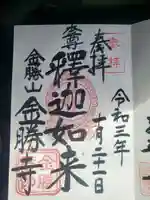 奉拝
令和三年
十月二十一日
釋迦如来
金勝山
金勝寺